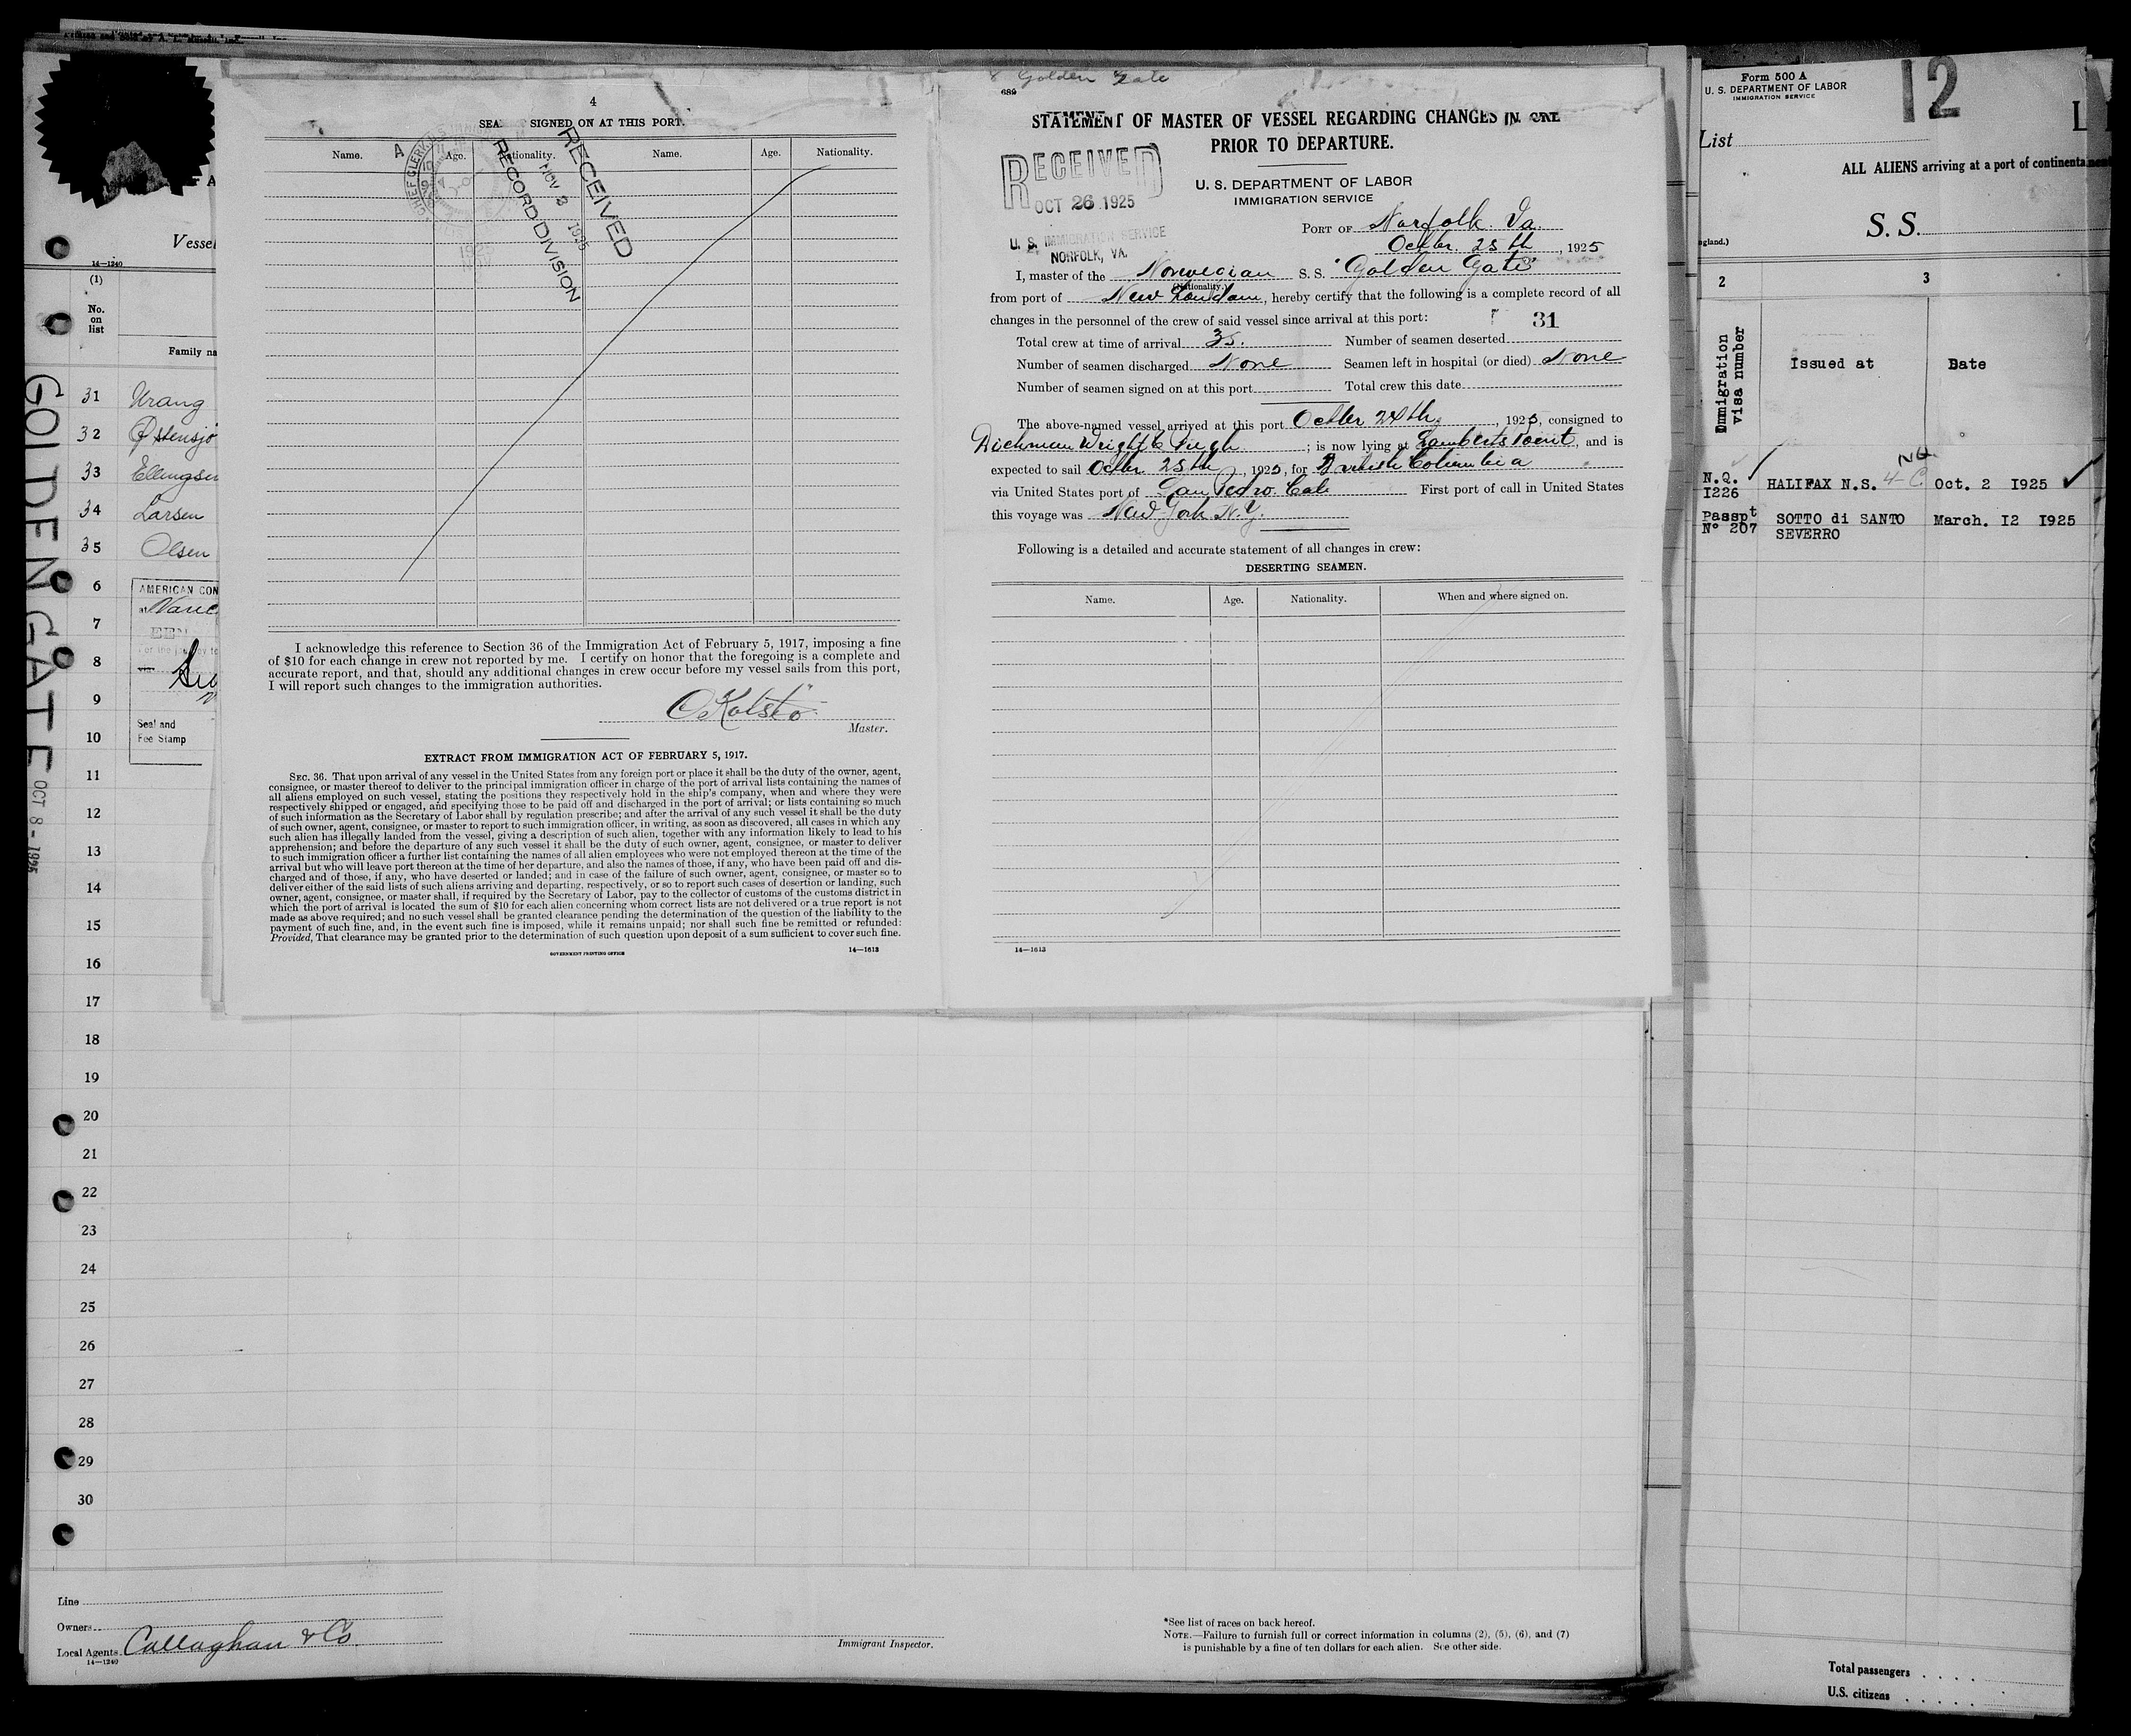 Vessel
14—1240
(1)
No.
on
list
Family na
31 Urang
32 Østensjo
33 Ellingsen
34 Larsen
35 Olsen
AMERICAN CON
6
7
8
9
Seal and
Fee Stamp
10
11
12
13
14
15
16
17
18
19
20
21
22
23
24
25
26
27
28
29
30
GOLDEN GATE OCT 8 - 1925
Line
Owners
Local Agents Callaghan & Co.
14—1240
Immigrant Inspector.
*See list of races on back hereof.
NOTE.—Failure to furnish full or correct information in columns (2), (5), (6), and (7)
is punishable by a fine of ten dollars for each alien. See other side.
4
SEA SIGNED ON AT THIS PORT.
Name. Age. Nationality. Name. Age. Nationality.
RECEIVED
NOV 3 1925
RECORD DIVISION
I acknowledge this reference to Section 36 of the Immigration Act of February 5, 1917, imposing a fine
of $10 for each change in crew not reported by me. I certify on honor that the foregoing is a complete and
accurate report, and that, should any additional changes in crew occur before my vessel sails from this port,
I will report such changes to the immigration authorities.
O. Kolstö
Master.
EXTRACT FROM IMMIGRATION ACT OF FEBRUARY 5, 1917.
SEC. 36. That upon arrival of any vessel in the United States from any foreign port or place it shall be the duty of the owner, agent,
consignee, or master thereof to deliver to the principal immigration officer in charge of the port of arrival lists containing the names of
all aliens employed on such vessel, stating the positions they respectively hold in the ship's company, when and where they were
respectively shipped or engaged, and specifying those to be paid off and discharged in the port of arrival; or lists containing so much
of such information as the Secretary of Labor shall by regulation prescribe; and after the arrival of any such vessel it shall be the duty
of such owner, agent, consignee, or master to report to such immigration officer, in writing, as soon as discovered, all cases in which any
such alien has illegally landed from the vessel, giving a description of such alien, together with any information likely to lead to his
apprehension; and before the departure of any such vessel it shall be the duty of such owner, agent, consignee, or master to deliver
to such immigration officer a further list containing the names of all alien employees who were not employed thereon at the time of the
arrival but who will leave port thereon at the time of her departure, and also the names of those, if any, who have been paid off and dis-
charged and of those, if any, who have deserted or landed; and in case of the failure of such owner, agent, consignee, or master so to
deliver either of the said lists of such aliens arriving and departing, respectively, or so to report such cases of desertion or landing, such
owner, agent, consignee, or master shall, if required by the Secretary of Labor, pay to the collector of customs of the customs district in
which the port of arrival is located the sum of $10 for each alien concerning whom correct lists are not delivered or a true report is not
made as above required; and no such vessel shall be granted clearance pending the determination of the question of the liability to the
payment of such fine, and, in the event such fine is imposed, while it remains unpaid; nor shall such fine be remitted or refunded:
Provided, That clearance may be granted prior to the determination of such question upon deposit of a sum sufficient to cover such fine.
GOVERNMENT PRINTING OFFICE 14—1613
Golden Gate
689
STATEMENT OF MASTER OF VESSEL REGARDING CHANGES IN CRE
PRIOR TO DEPARTURE.
RECEIVED
OCT 26 1925
U. S. IMMIGRATION SERVICE
NORFOLK, VA.
U. S. DEPARTMENT OF LABOR
IMMIGRATION SERVICE
PORT OF Norfolk. Va.
Octbr. 25th, 1925
I, master of the Norwegian S. S. "Golden Gate"
(Nationality.)
from port of New London, hereby certify that the following is a complete record of all
changes in the personnel of the crew of said vessel since arrival at this port: 31
Total crew at time of arrival 35. Number of seamen deserted
Number of seamen discharged None Seamen left in hospital (or died) None
Number of seamen signed on at this port Total crew this date
The above-named vessel arrived at this port Octber 24th, 1925, consigned to
Dichman Wright & Pugh; is now lying at Lamberts Point, and is
expected to sail Octbr 25th, 1925, for British Columbia
via United States port of San Pedro. Cal. First port of call in United States
this voyage was New York N.Y.
Following is a detailed and accurate statement of all changes in crew:
DESERTING SEAMEN.
Name. Age. Nationality. When and where signed on.
14—1613
Form 500 A
U. S. DEPARTMENT OF LABOR
IMMIGRATION SERVICE
12
List
ALL ALIENS arriving at a port of continenta
S. S.
ngland.)
2 3
Immigration visa number
Issued at Date
N.Q. I226 HALIFAX N.S. Oct. 2 I925
Passpt N° 207 SOTTO di SANTO SEVERRO March. I2 I925
Total passengers
U.S. citizens